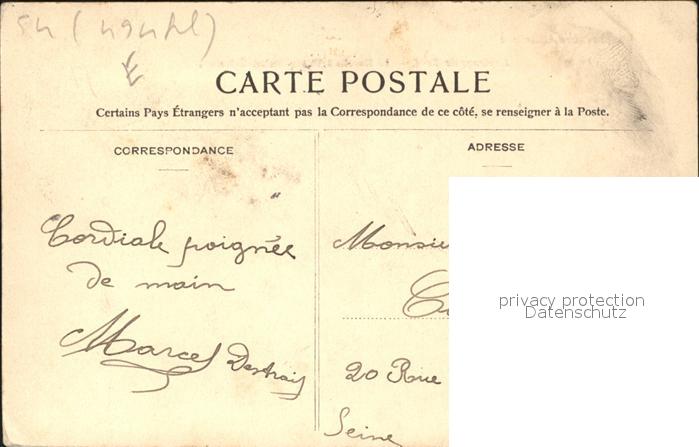 CARTE POSTALE
Certains Pays Étrangers n'acceptant pas la Correspondance de ce côté, se renseigner à la Poste.
CORRESPONDANCE
ADRESSE
Cordiale poignée
de main
Marcel
Monsie
privacy protection
Datenschutz
20 Rue
Seine